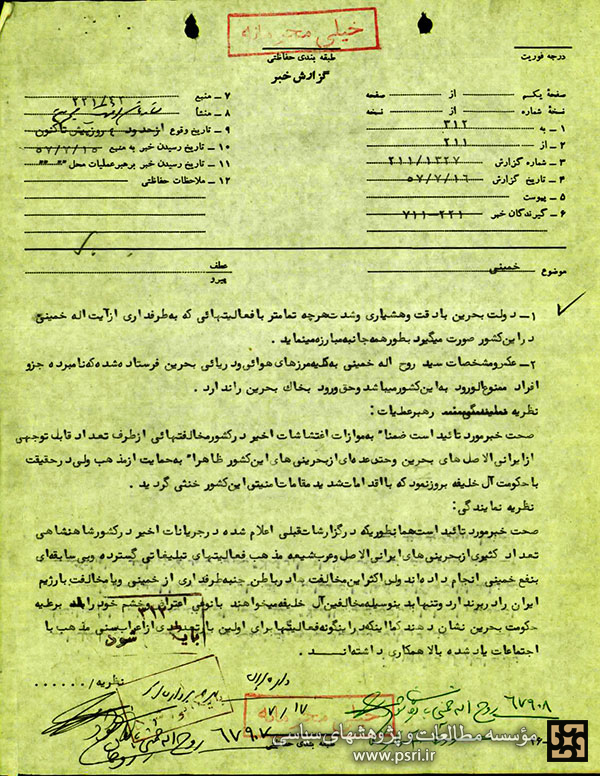 خیلی محرمانه
طبقه بندی حفاظتی
درجه فوریت
گزارش خبر
صفحه یکم از صفحه
نسخه شماره از نسخه
۱ ـ به ۳۱۲
۲ ـ از ۲۱۱
۳ ـ شماره گزارش ۲۱۱/۱۳۲۷
۴ ـ تاریخ گزارش ۵۷/۷/۱۶
۵ ـ پیوست
۶ ـ گیرندگان خبر ۲۲۱-۷۱۱
۷ ـ منبع
۸ ـ منشأ
۹ ـ تاریخ وقوع ازحدود روزپیش تاکنون
۱۰ ـ تاریخ رسیدن خبر به منبع ۵۷/۷/۱۵
۱۱ ـ تاریخ رسیدن خبر برهبر عملیات محل
۱۲ ـ ملاحظات حفاظتی
موضوع خمینی
عطف
پیرو
۱ـ دولت بحرین بادقت وهشیاری وشدت هرچه تمامتر با فعالیتهائی که به طرفداری ازآیت اله خمینی
دراین کشور صورت میگیرد بطور همه جانبه مبارزه مینماید .
۲ـ عکس ومشخصات سید روح اله خمینی به کلیه مرزهای هوائی ودریائی بحرین فرستاده شده که نامبرده جزو
افراد ممنوع الورود به این کشور میباشد وحق ورود بخاک بحرین راندارد .
نظریه رهبرعملیات :
صحت خبر مورد تائید است ضمنا" به موازات اغتشاشات اخیر درکشور مخالفتهائی ازطرف تعداد قابل توجهی
از ایرانی الاصل های بحرین وحتی عده ای ازبحرینی های این کشور ظاهرا" به حمایت ازمذهب ولی درحقیقت
با حکومت آل خلیفه بروز نمود که با اقدامات شدید مقامات امنیتی این کشور خنثی گردید .
نظریه نمایندگی :
صحت خبر مورد تائید است همانطوریکه درگزارشات قبلی اعلام شده درجریانات اخیر درکشور شاهنشاهی
تعداد کثیری ازبحرینی های ایرانی الاصل وعرب شیعه مذهب فعالیتهای تبلیغاتی گسترده وبی سابقه ای
بنفع خمینی انجام داده اند ولی اکثر این مخالفت ها درباطن جنبه طرفداری از خمینی ویا مخالفت بارژیم
ایران را دربرندارد وتنها بدینوسیله مخالفین آل خلیفه میخواهند بانوعی اعتراض وخشم خود را برعلیه
حکومت بحرین نشان دهند کمااینکه دراینگونه فعالیتها برای اولین بار تعدادی ازاعراب سنی مذهب با
اجتماعات یاد شده بالا همکاری داشته اند .
۳۱۲
باید شود
نظریه/......
۷/۱۷
۶۷۹۰۸
۶۷۹۰۷
خیلی محرمانه
طبقه بندی حفاظتی
مؤسسه مطالعات و پژوهشهای سیاسی
www.psri.ir